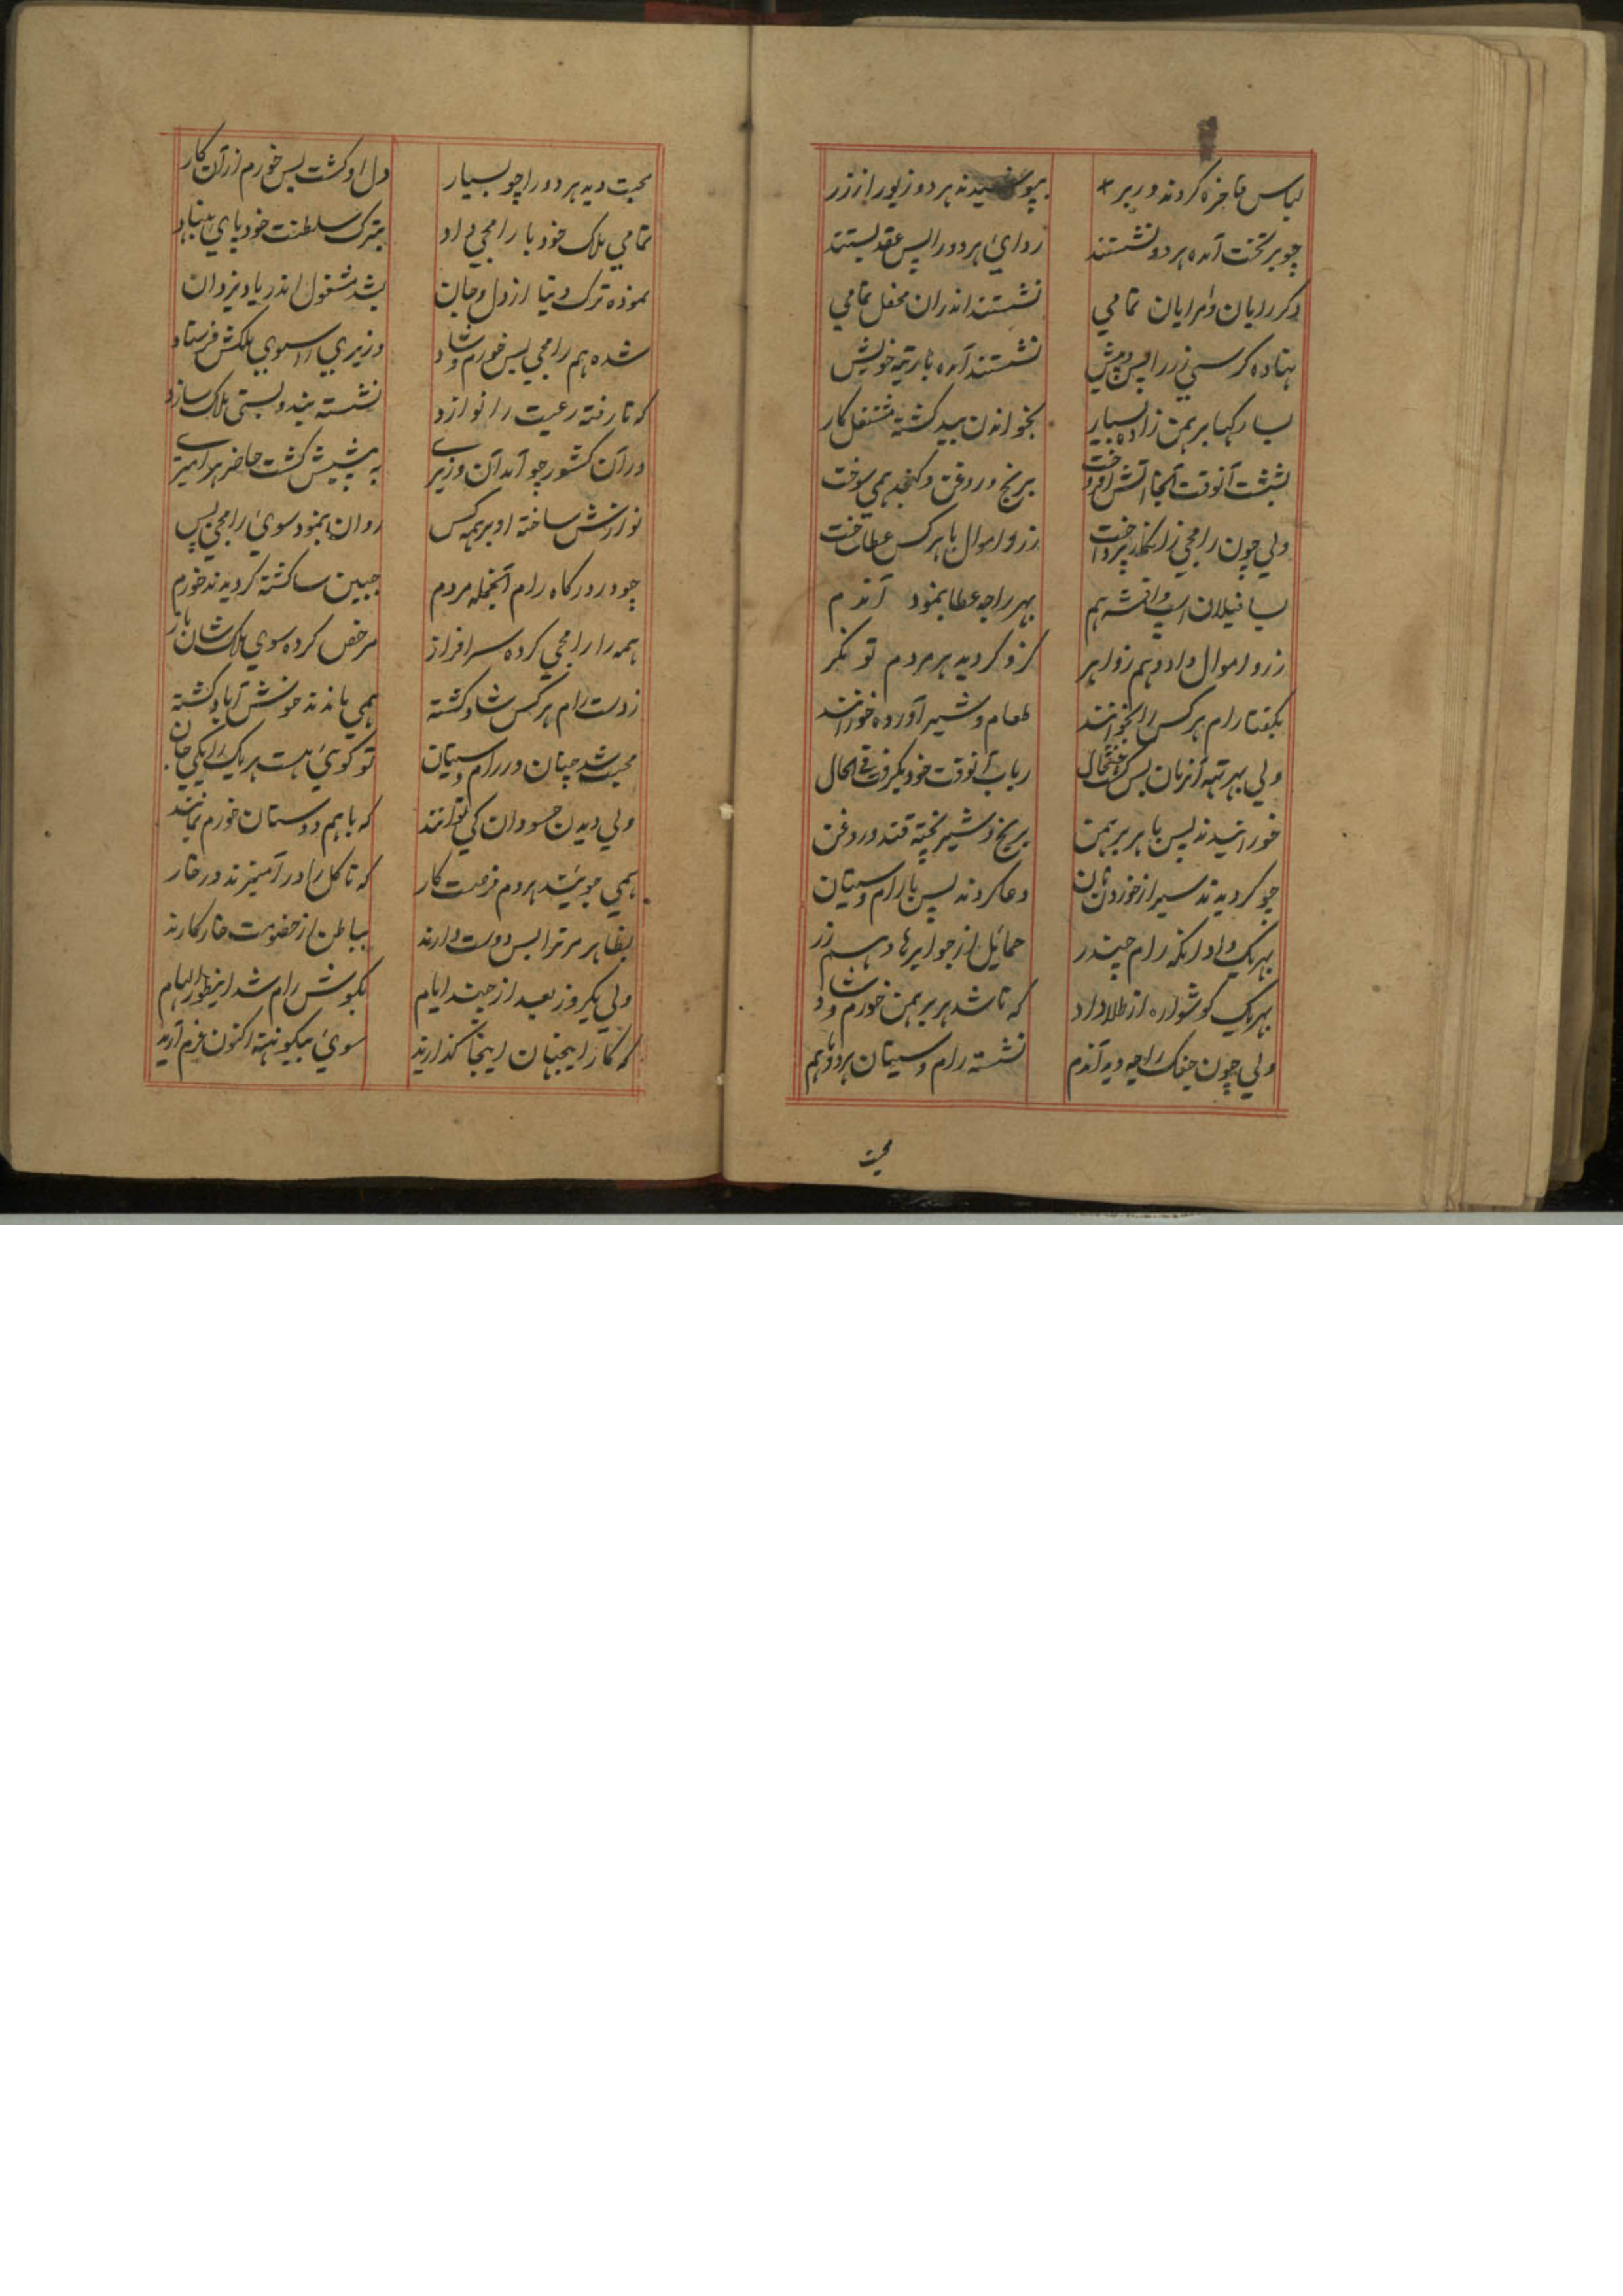 لباس فاخره کردند در بر بپوشیدند هر دو زیور از زر
چو بر تخت آمده هر دو نشستند ردای هر دو را پس عقد بستند
دکر رایان و امرایان تمامی نشستند اندران محفل تمامی
نهاده کرسی زر را پس و پیش نشستند آمده با رتبه خویش
بسا رکهیا برهمن زاده بسیار بخواندن بید کشته مشتغل کار
بششت آنوقت آنجا آتش افروخت برنج و روغن و کنجد همی سوخت
ولی چون رامجی زانکار پرداخت زر و اموال با هر کس عطا ساخت
بسا فیلان اسپ و هم بهر راجه عطا بنمود آندم
زر و اموال داد و هم زواهر کزو کردید هر مردم تونکر
بکفتا رام هر کس را بخوانند طعام و شیر آورده خورانند
ولی بهر آنزمان بس آنوقت خود بکرفت فی الحال
خورانیدند پس با هر برهمن برنج و شیر پخته قند و روغن
چو کردیدند سیر از خوردن نان دعا کردند پس با رام و سیتان
بهریک داد رام چندر حمایل از جواهرها و هم زر
بهریک کوشواره از طلا داد که تا شد هر برهمن خورم و شاد
ولی چون جنک راجه دید آندم نشسته رام و سیتان هر دو باهم
محبت
محبت دید هر دو را چو بسیار دل او کشت بس خورم از آن کار
تمامی ملک خود با رامجی داد بترک سلطنت خود پای بنهاد
نموده ترک دنیا از دل و جان بشد مشغول اندر یاد یزدان
شده هم رامجی بس خورم و شاد وزیری را سوی ملکش فرستاد
که تا رفته رعیت را نوازد نشسته بندوبستی ملک سازد
در آن کشور چو آمد آن وزیری به پیشش کشت حاضر هر امیری
نوازش ساخته او بر همه کس روان بنمود سوی رامجی پس
چو در درکاه رام آنجمله مردم جبین سا کشته کردیدند خورم
همه را رامجی کرده سرافراز مرخص کرده سوی ملک شان باز
ز دست رام هر کس شاد کشته همی ماندند خوش آباد کشته
محبت شد چنان در رام و سیتان تو کوئی هست هریک را یکی جان
ولی دیدن حسودان کی توانند که باهم دوستان خورم بمانند
همی جویند هر دم فرصت کار که تا کل را در آمیزند در خار
بظاهر مر ترا بس دوست دارند بباطن از خصومت خار کارند
ولی یکروز بعد از چند ایام بکوش رام شد اینطور الهام
که کار اینجهان اینجا کذارید سوی بیکونته اکنون عزم آرید